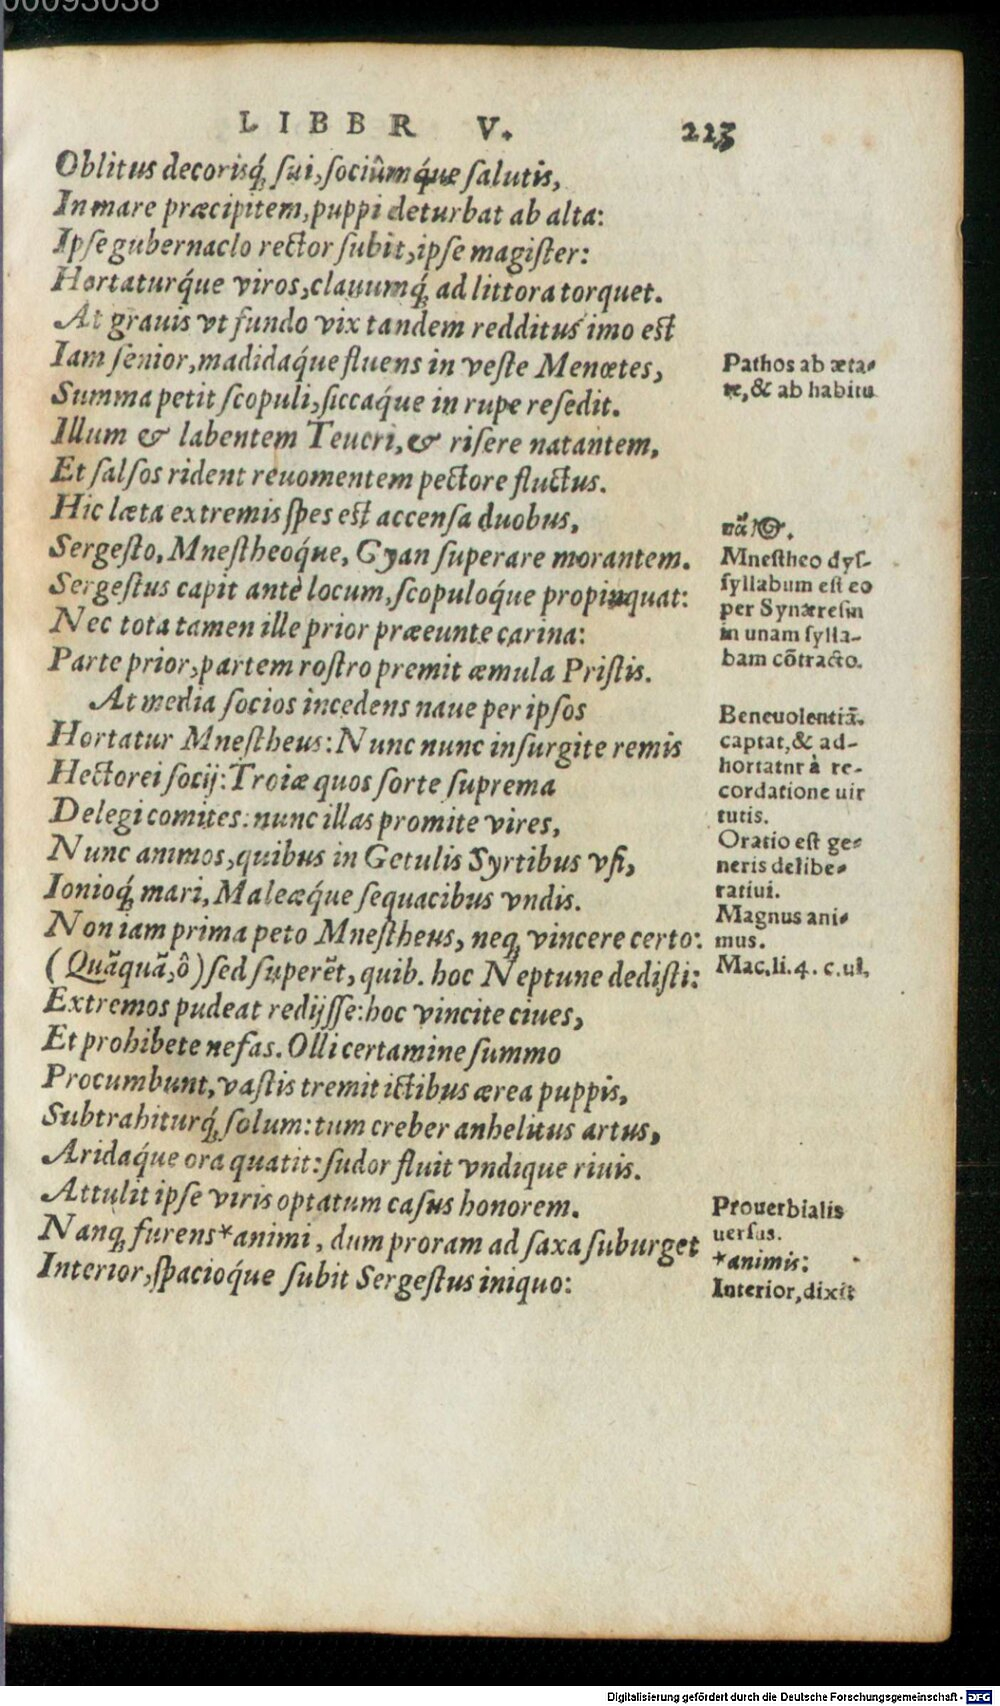 00093038
LIBBR V. 223
Oblitus decorisq́; ſui, ſociûmq́ue ſalutis,
In mare præcipitem, puppi deturbat ab alta:
Ipſe gubernaclo rector ſubit, ipſe magiſter:
Hortaturq́ue viros, clauumq́; ad littora torquet.
At grauis vt fundo vix tandem redditus imo est
Iam ſenior, madidaq́ue fluens in veſte Menœtes,
Summa petit ſcopuli, ſiccaq́ue in rupe reſedit.
Illum & labentem Teucri, & riſere natantem,
Et ſalſos rident reuomentem pectore fluctus.
Hic læta extremis ſpes est accenſa duobus,
Sergeſto, Mneſtheoq́ue, Gyan ſuperare morantem.
Sergeſtus capit antè locum, ſcopuloq́ue propinquat:
Nec tota tamen ille prior præeunte carina:
Parte prior, partem roſtro premit æmula Priſtis.
At media ſocios incedens naue per ipſos
Hortatur Mneſtheus: Nunc nunc inſurgite remis
Hectorei ſocij: Troiæ quos ſorte ſuprema
Delegi comites: nunc illas promite vires,
Nunc animos, quibus in Getulis Syrtibus vſi,
Ionioq́; mari, Maleæq́ue ſequacibus vndis.
Non iam prima peto Mneſtheus, neq; vincere certo:
(Quãquã, ô) ſed ſuperẽt, quib. hoc Neptune dediſti:
Extremos pudeat redijſſe: hoc vincite ciues,
Et prohibete nefas. Olli certamine ſummo
Procumbunt, vaſtis tremit ictibus ærea puppis,
Subtrahiturq́; ſolum: tum creber anhelitus artus,
Aridaq́ue ora quatit: ſudor fluit vndique riuis.
Attulit ipſe viris optatum caſus honorem.
Nanq; furens*animi, dum proram ad ſaxa ſuburget
Interior, ſpacioq́ue ſubit Sergeſtus iniquo:
Pathos ab æta-
te, & ab habitu
Mneſtheo dyſ-
ſyllabum eſt eo
per Synæreſin
in unam ſylla-
bam cõtracto.
Beneuolentiã.
captat, & ad-
hortatnr à re-
cordatione uir
tutis.
Oratio eſt ge-
neris delibe-
ratiui.
Magnus ani-
mus.
Mac. li. 4. c. ul.
Prouerbialis
uerſus.
*animis:
Interior, dixit
Digitalisierung gefördert durch die Deutsche Forschungsgemeinschaft - DFG